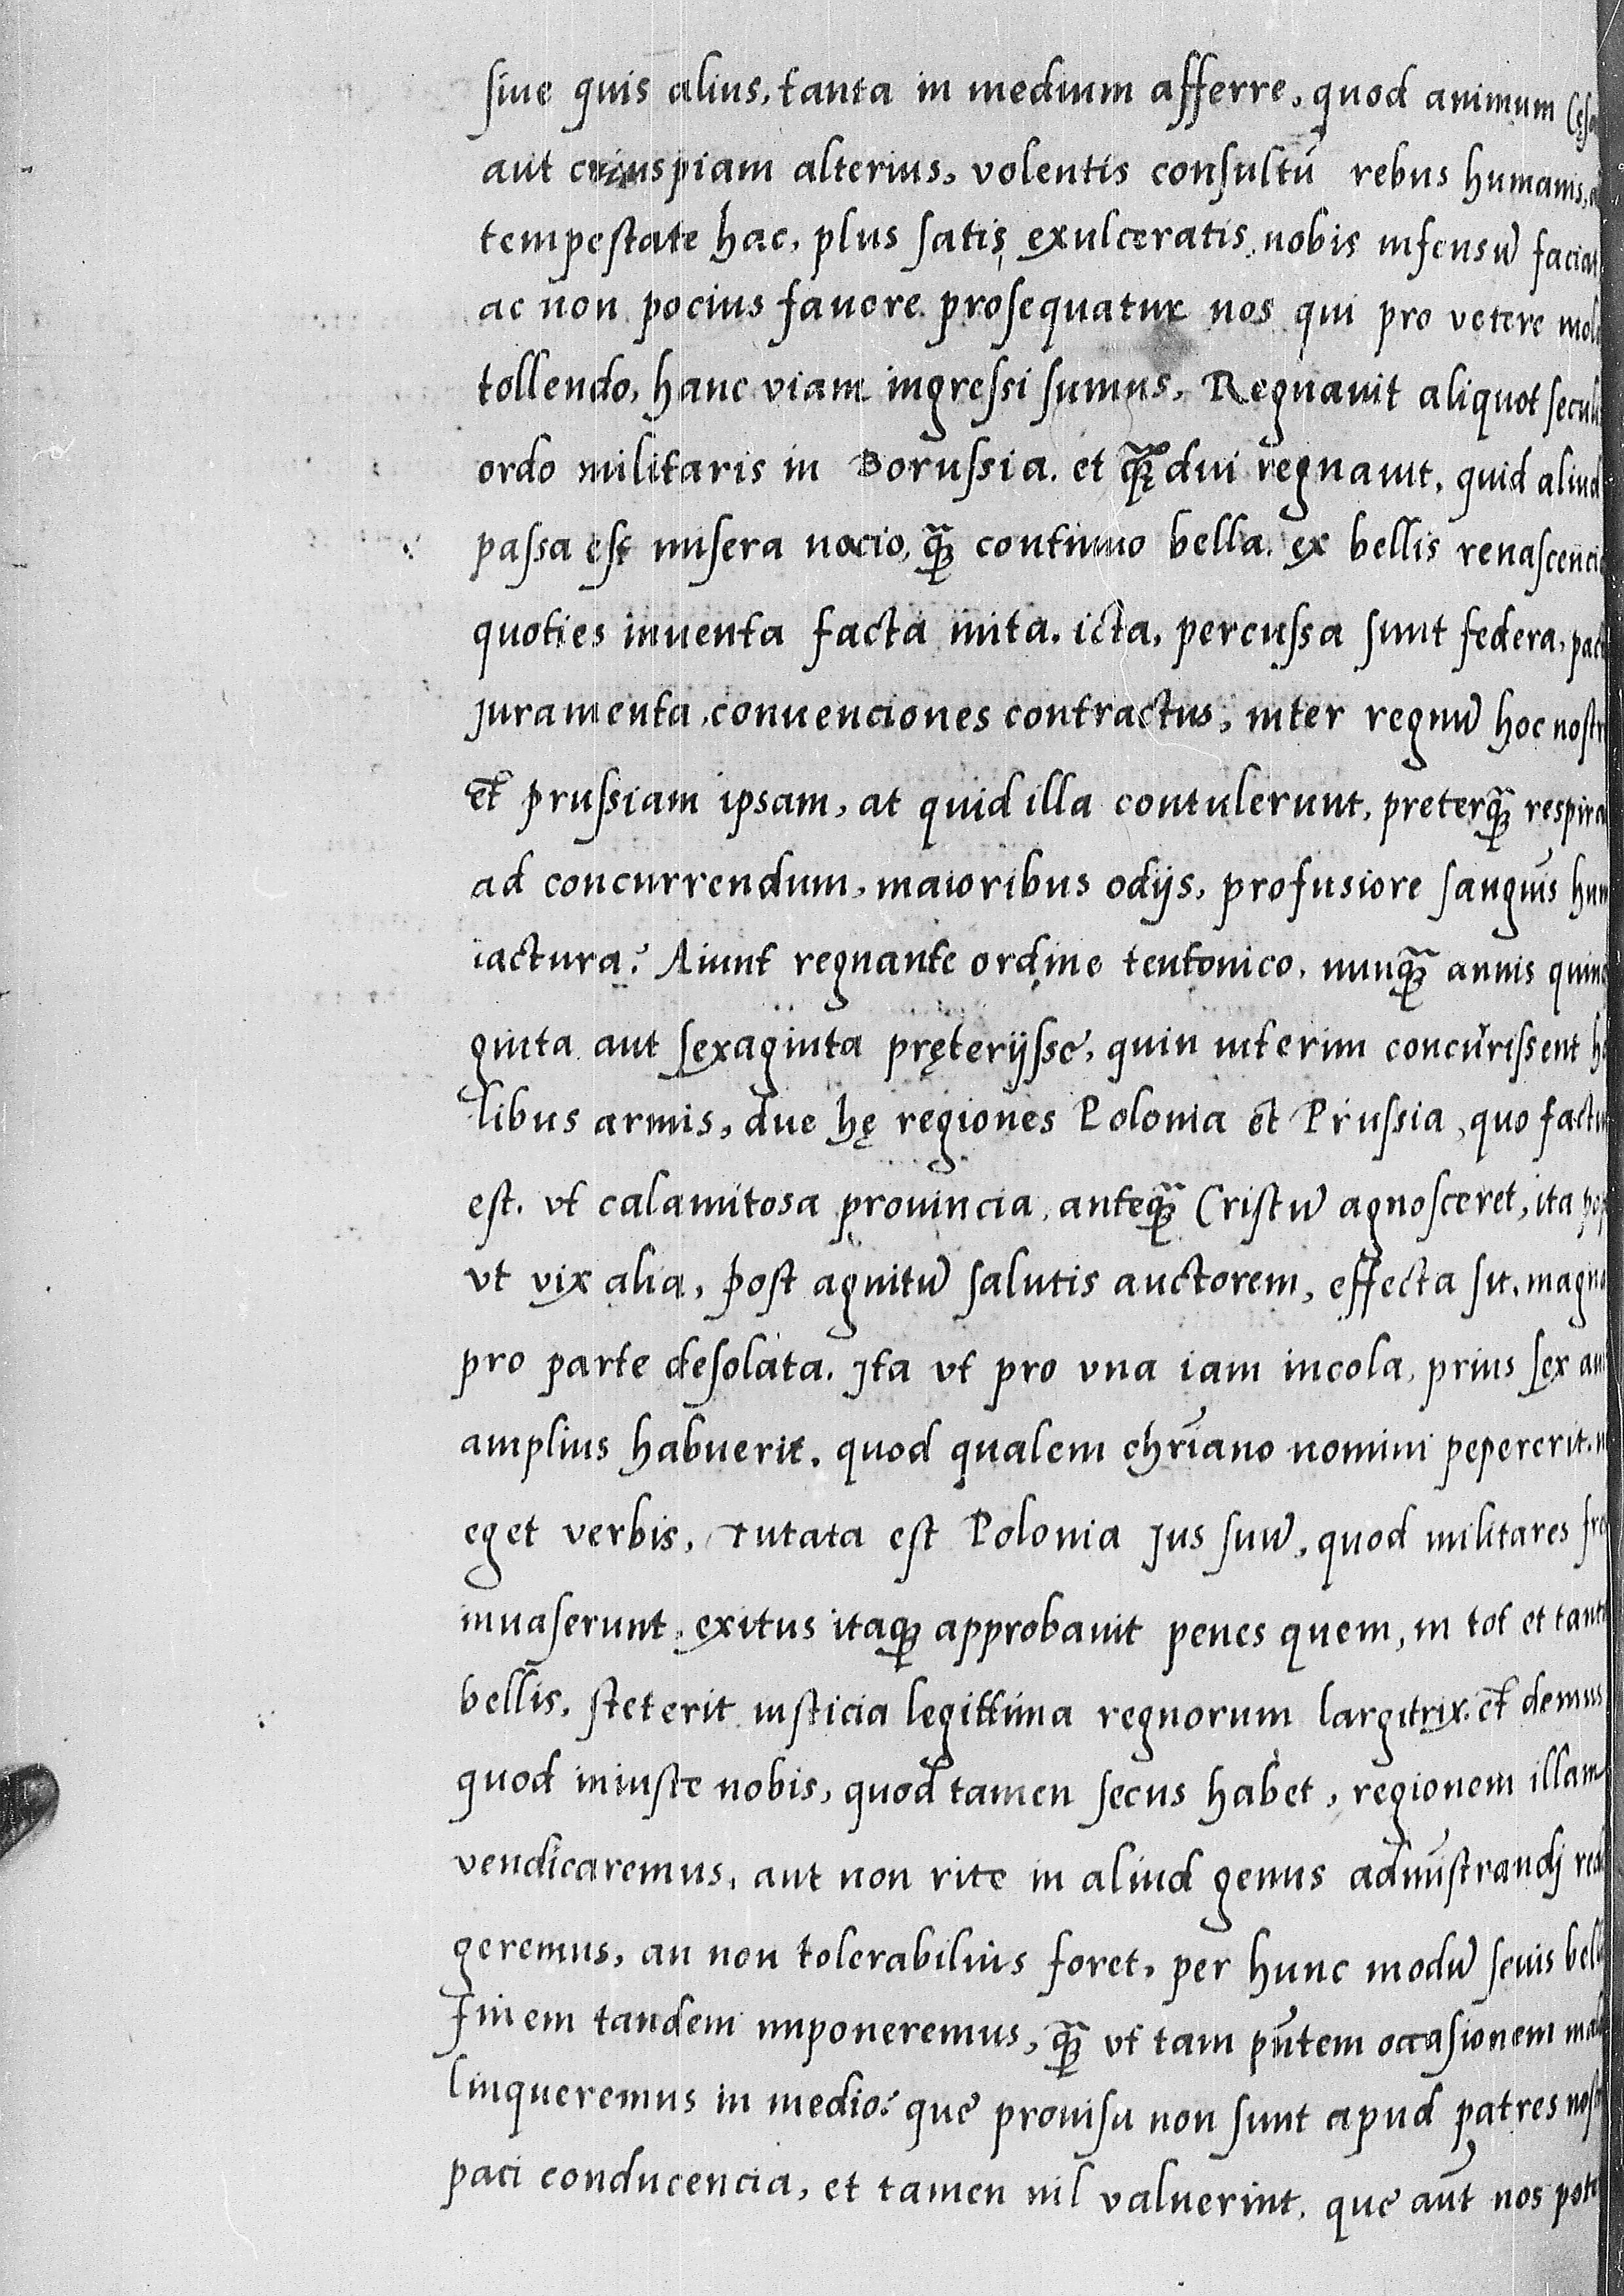 siue quis alius, tanta in medium afferre, quod animum
aut cuiuspiam alterius, volentis consultũ rebus humanis,
tempestate hac, plus satis exulceratis, nobis infensũ faciat
ac non pocius fauore prosequatur nos qui pro vetere
tollendo, hanc viam ingressi sumus, Regnauit aliquot secul
ordo militaris in Borussia. et qᷓdiu regnauit, quid aliud
passa est misera nacio, qᷓ continuo bella. ex bellis
quoties inuenta facta inita. icta, percussa sunt federa,
Juramenta, conuenciones contractus, inter regnũ hoc nostr
et prussiam ipsam, at quid illa contulerunt, preterqᷓ respira
ad concurrendum, maioribus odijs, profusiore sanguĩs hum
iactura? Aiunt regnante ordine teutonico, nunqᷓ annis quin
ginta aut sexaginta pręterijsse, quin interim concũrissent ho
libus armis, due hę regiones Polonia et Prussia, quo factu
est. vt calamitosa prouincia, anteqᷓ Cristũ agnosceret, ita pop
vt vix alia, post agnitũ salutis auctorem, effecta sit. magna
pro parte desolata. Ita vt pro vna iam incola, prius sex au
amplius habuerit. quod qualem chrĩano nomini pepererit. n
eget verbis, Tutata est Polonia Jus suũ, quod militares fra
inuaserunt, exitus itaqꝫ approbauit penes quem, in tot et tant
bellis, steterit iusticia legittima regnorum largitrix. et demus
quod iniuste nobis, quod tamen secus habet, regionem illam
vendicaremus, aut non rite in aliud genus admĩstrandj red
geremus, an non tolerabilius foret, per hunc modũ seuis bell
finem tandem imponeremus, qᷓ vt tam pñtem occasionem mal
linqueremus in medio? que prouisa non sunt apud patres nost
paci conducencia, et tamen nil valuerint. que aũt nos pote